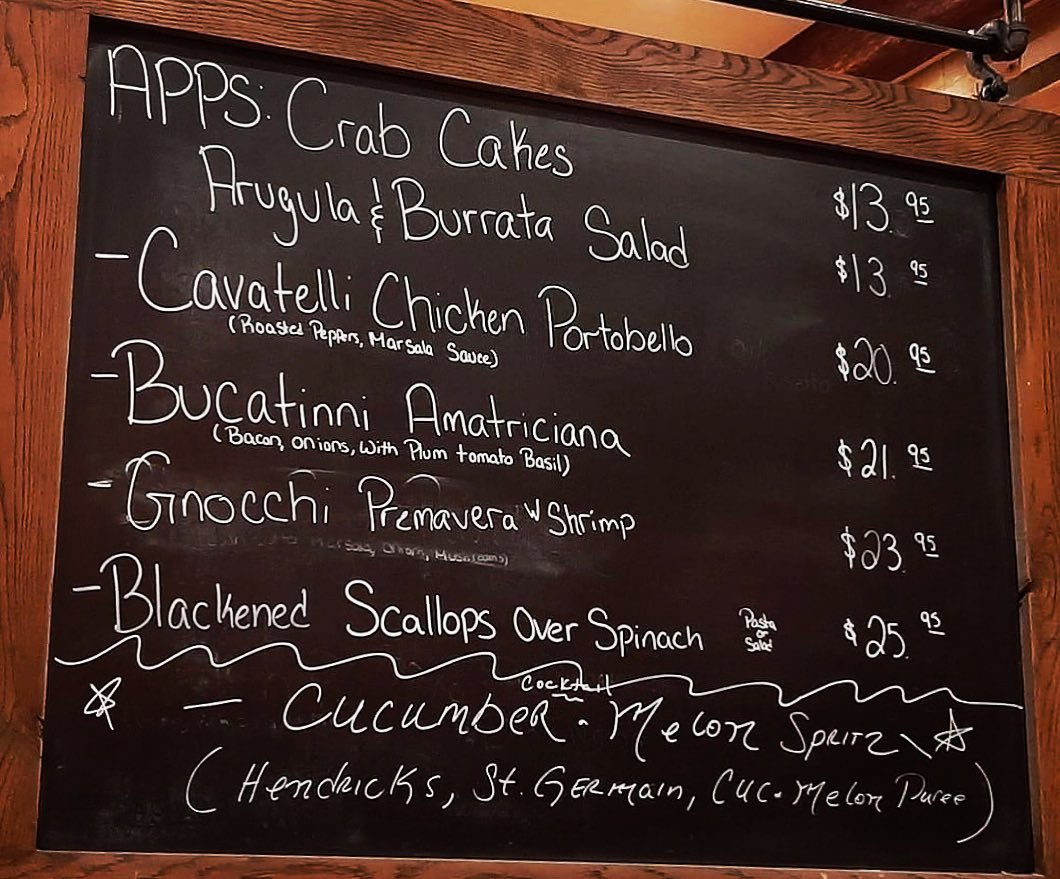 APPS: Crab Cakes $13.95
Arugula & Burrata Salad $13 95
- Cavatelli Chicken Portobello $20.95
(Roasted Peppers, Marsala Sauce)
- Bucatinni Amatriciana $21.95
(Bacon, onions, with Plum tomato Basil)
- Gnocchi Premavera w Shrimp $23.95
- Blackened Scallops Over Spinach Pasta or Salad $25.95
Cocktail
- Cucumber - Melon Spritz
(Hendricks, St. Germain, Cuc-Melon Puree)